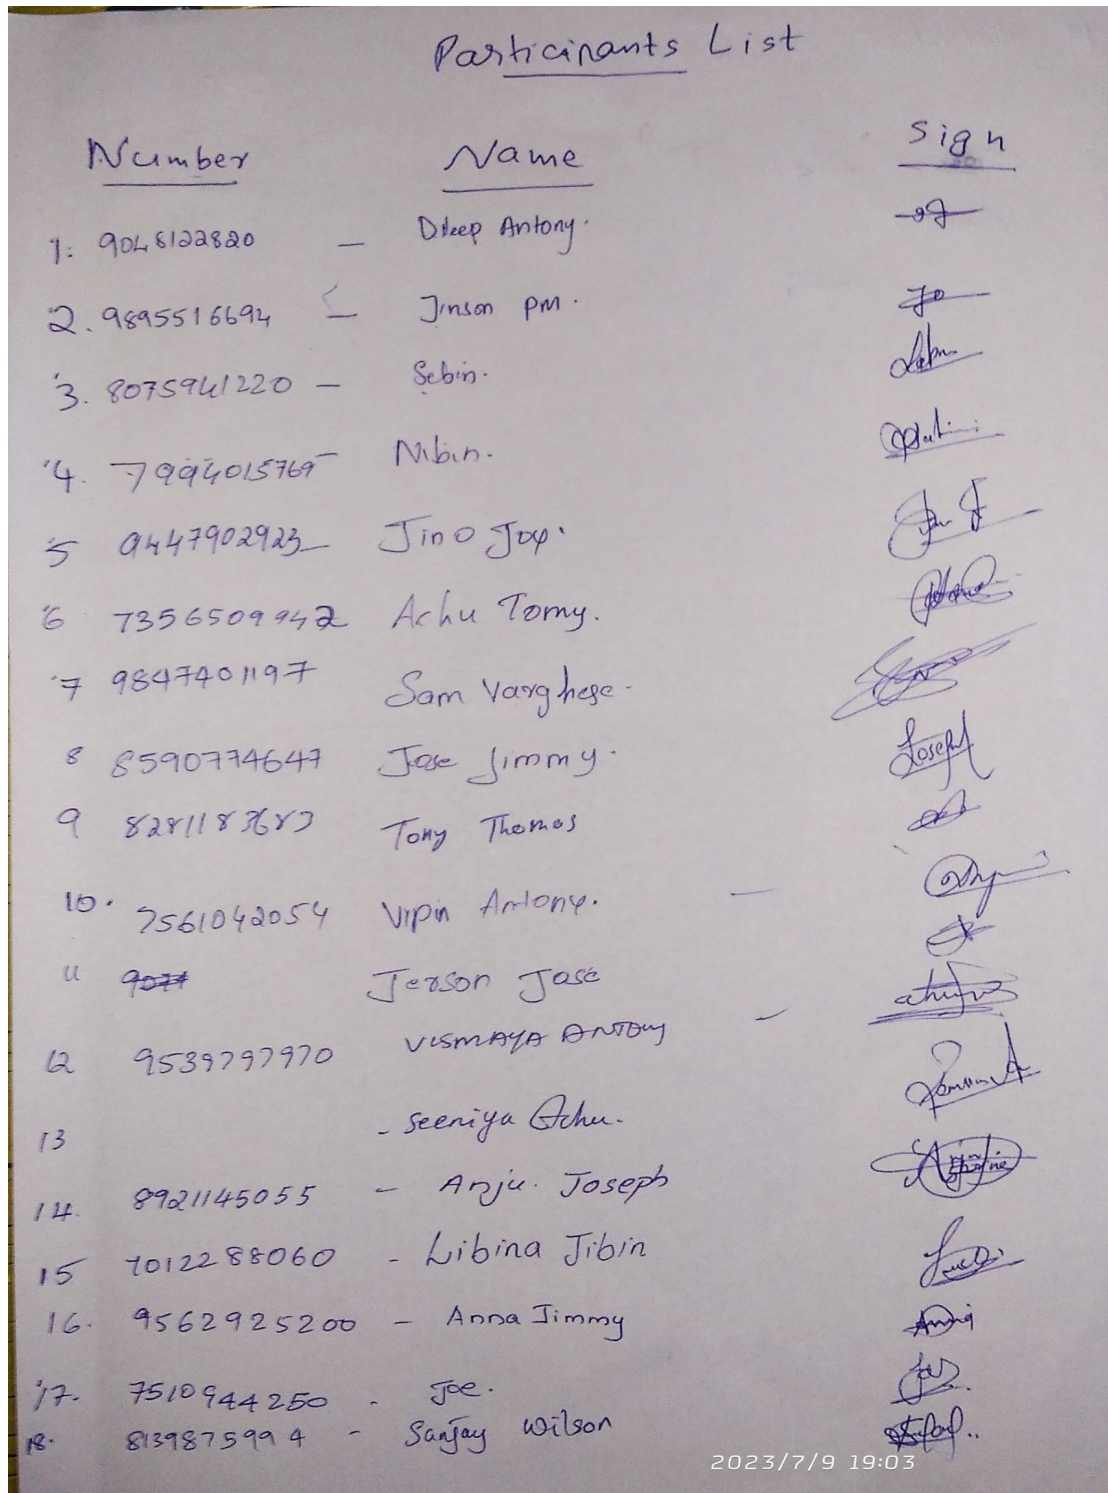 Participants List
Number Name Sign
1. 9048122820 — Dileep Antony.
2. 9895516694 — Jinson PM.
3. 8075941220 — Sebin.
4. 7994015769 — Nibin.
5 9447902923 — Jino Joy.
6 7356509942 Achu Tomy.
7 9847401197 Sam Varghese
8 8590774647 Jose Jimmy. Joseph
9 8281183683 Tony Thomas
10. 7561042054 Vipin Antony. —
11 Jerson Jose
12 9539797970 VISMAYA ANTONY —
13 - Seeniya Achu.
14. 8921145055 - Anju. Joseph
15 7012288060 - Libina Jibin
16. 9562925200 - Anna Jimmy Anna
17. 7510944250 - Joe.
18. 8139875994 - Sanjay Wilson
2023/7/9 19:03